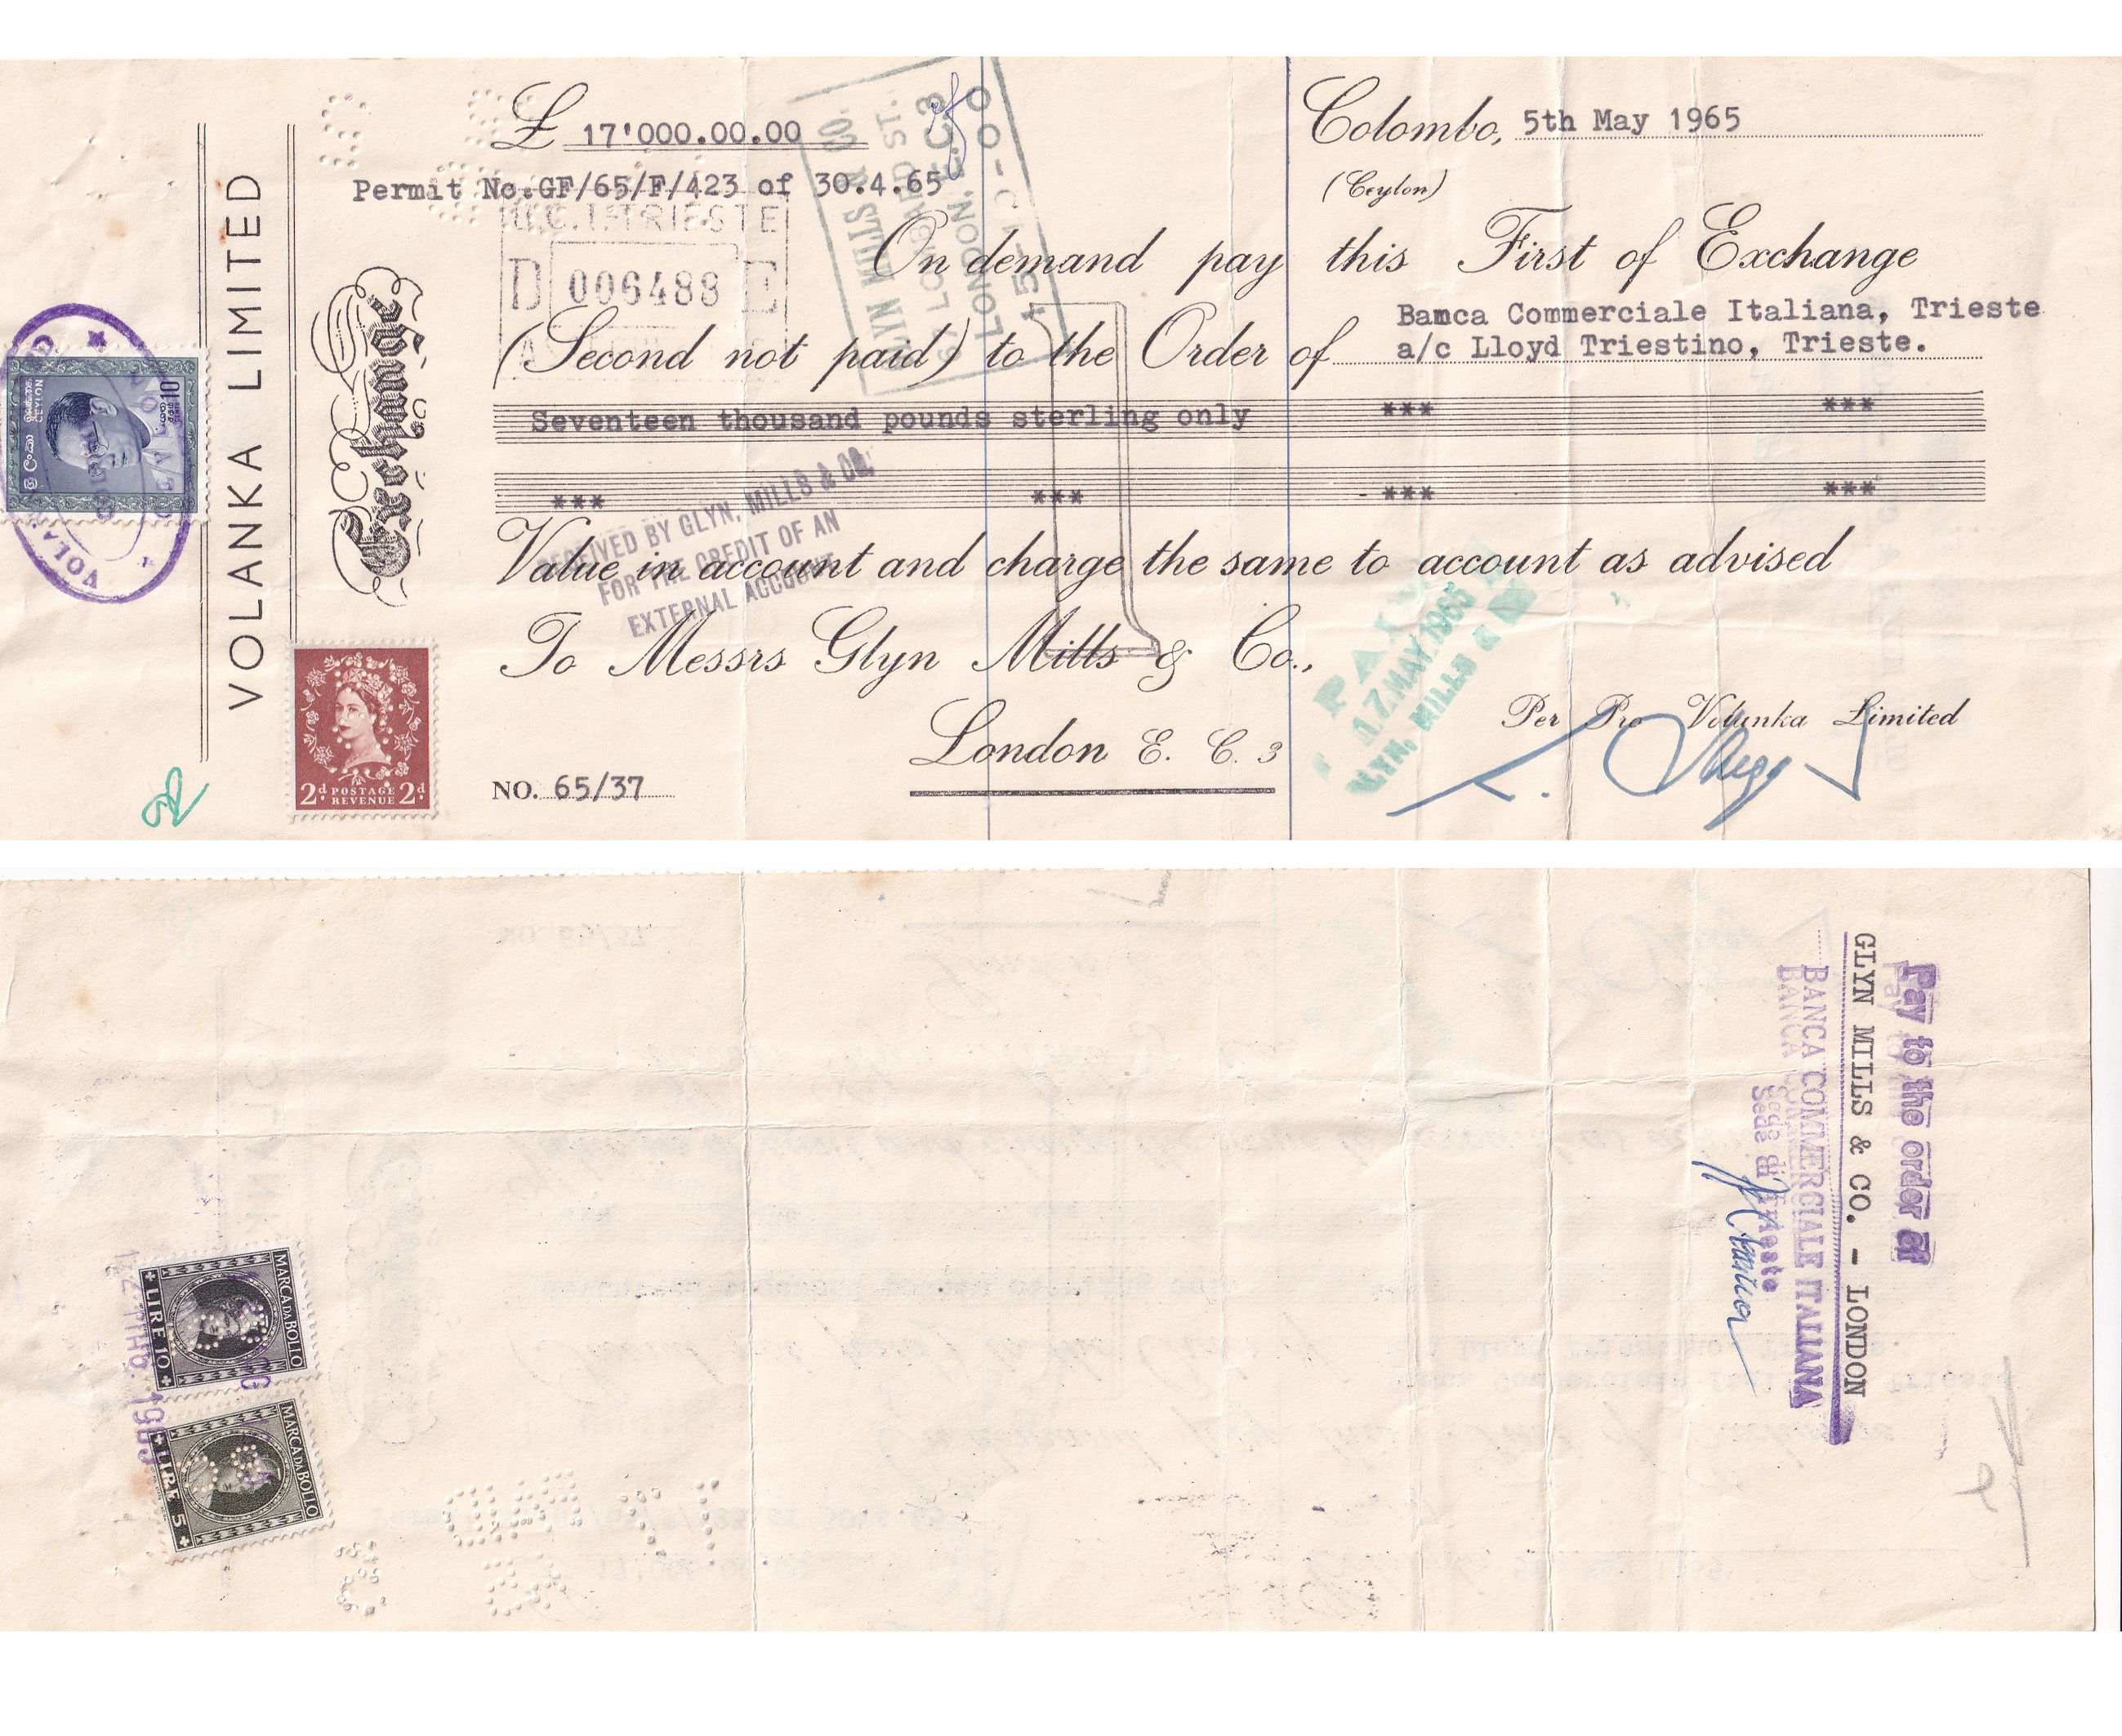 £ 17'000.00.00
Colombo, 5th May 1965
(Ceylon)
Permit No.GF/65/F/423 of 30.4.65
B.C.I. TRIESTE
D 006488 E
GLYN MILLS & CO.
LOMBARD ST.
LONDON. E.C3
On demand pay this First of Exchange
(Second not paid) to the Order of
Banca Commerciale Italiana, Trieste
a/c Lloyd Triestino, Trieste.
Seventeen thousand pounds sterling only *** ***
*** *** *** ***
RECEIVED BY GLYN, MILLS & CO.
FOR THE CREDIT OF AN
EXTERNAL ACCOUNT
Value in account and charge the same to account as advised
To Messrs Glyn Mills & Co.,
London E. C. 3
PAID
17 MAY 1965
GLYN, MILLS &
Per Pro Volanka Limited
NO. 65/37
VOLANKA LIMITED
Exchange
CEYLON
10
2d POSTAGE REVENUE 2d
Pay to the order of
GLYN MILLS & CO. - LONDON
BANCA COMMERCIALE ITALIANA
Sede di Trieste
MARCA DA BOLLO
LIRE 10
MARCA DA BOLLO
LIRE 5